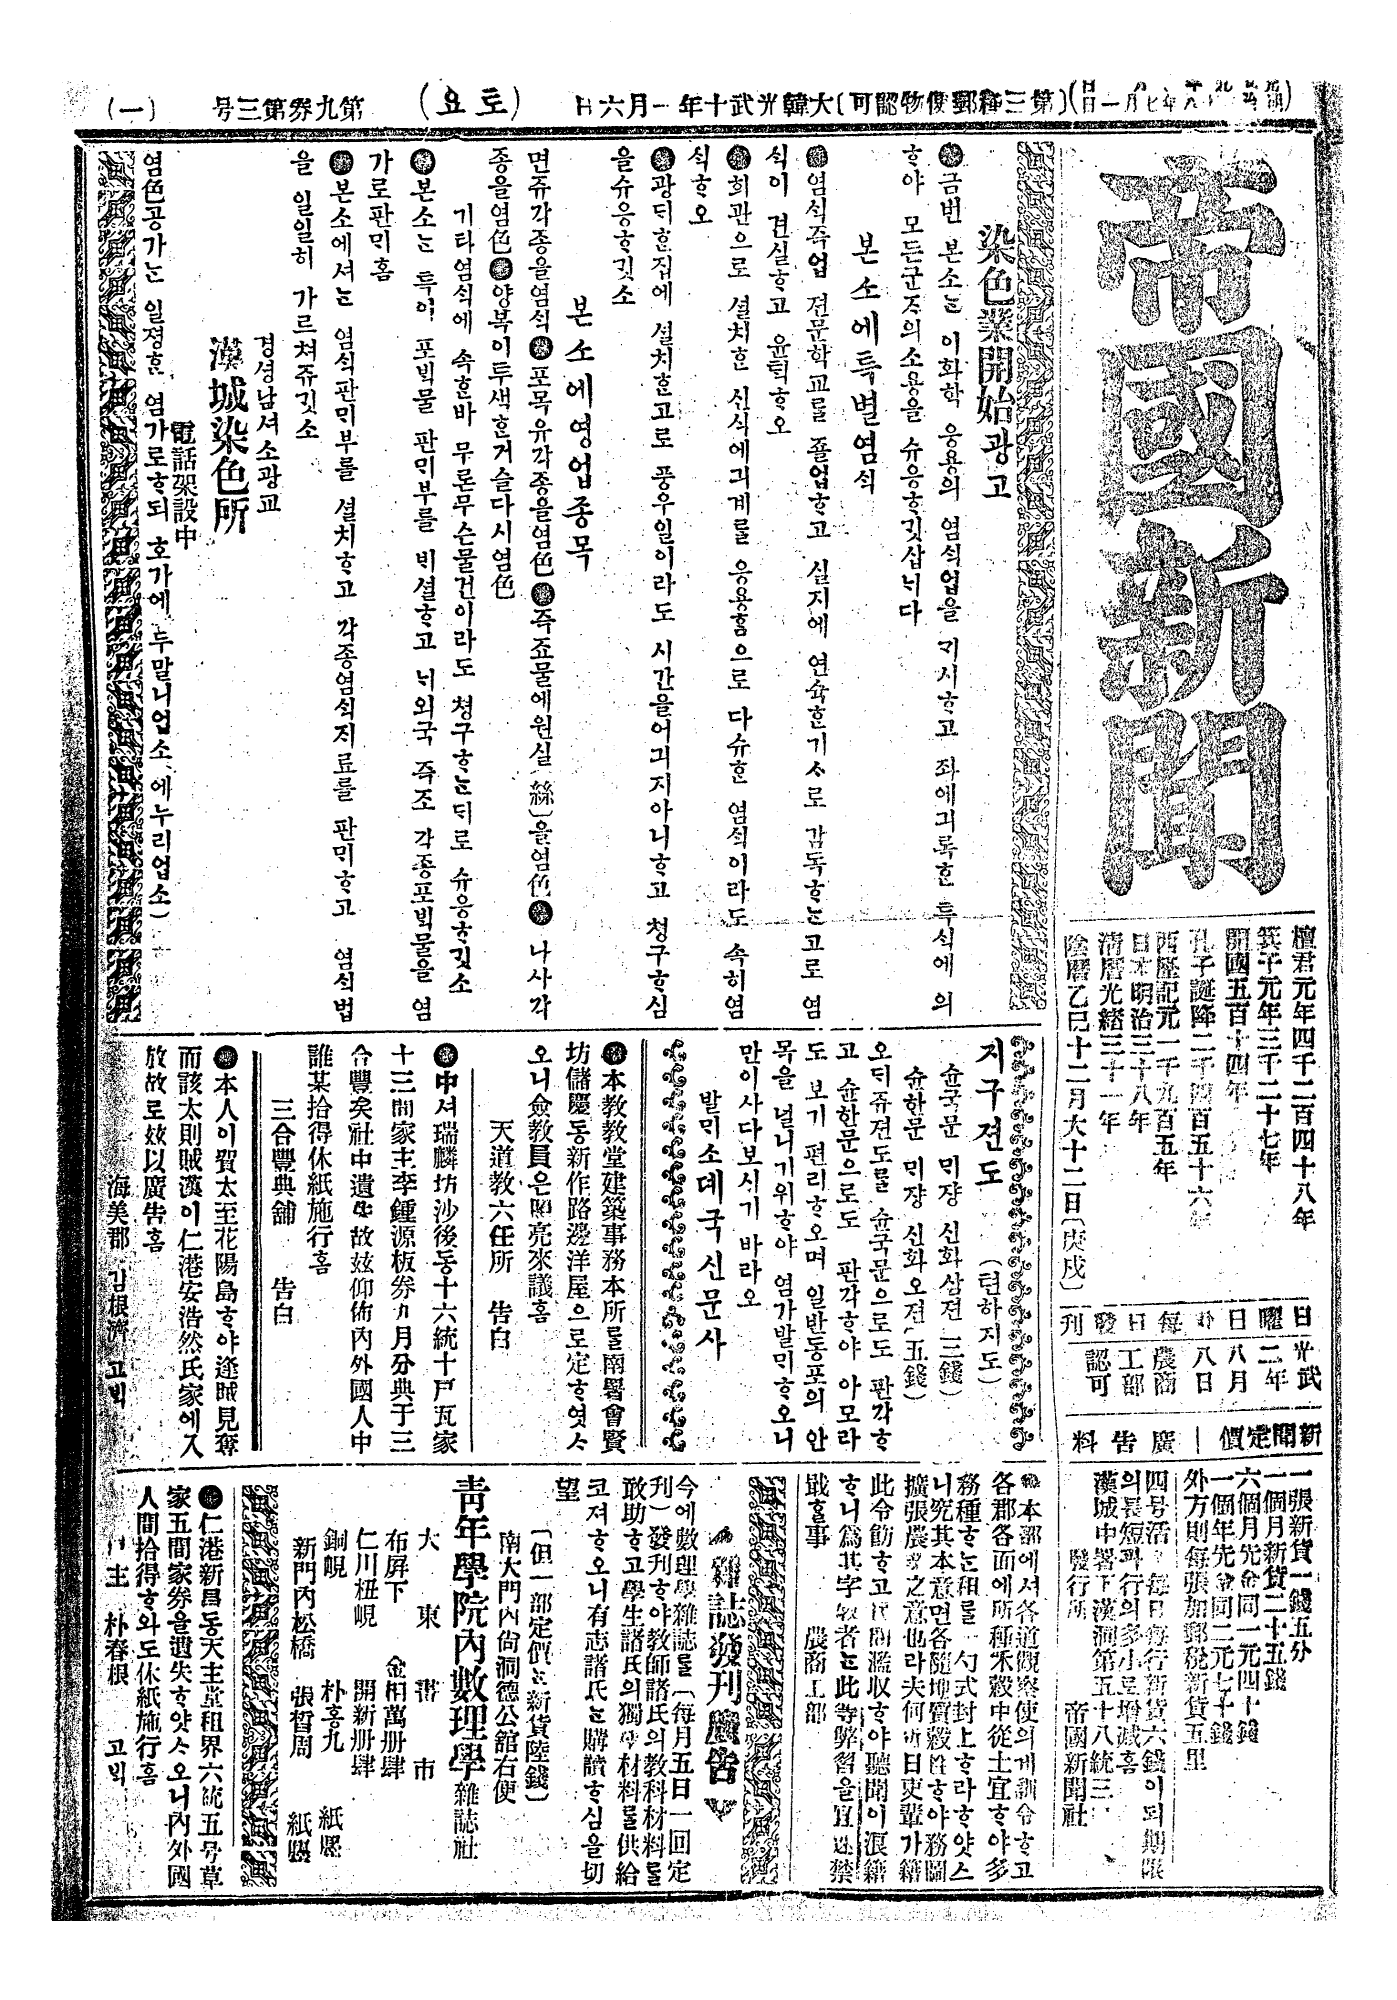 (第三種郵便物認可)大韓光武十年一月六日 (토요) 第九券第三号 (一)
帝國新聞
檀君元年四千二百四十八年
箕子元年三千二十七年
開國五百十四年
孔子誕降二千四百五十六年
西曆記元一千九百五年
日本明治三十八年
淸曆光緖三十一年
陰曆乙巳十二月大十二日(庚戌)
日曜日外每日發刊
光武二年八月八日
農商工部認可
新聞定價 廣告料
一張新貨一錢五分
一個月新貨二十五錢
六個月先金同一元四十錢
一個年先金同二元七十錢
外方則每張加郵稅新貨五里
四号活 每日每行新貨六錢이되期限
의長短과行의多小로增減홈
漢城中署下漢洞第五十八統三
發行所 帝國新聞社
染色業開始광고
●금번 본소는 이화학 응용의 염식업을 ᄀᆡ시ᄒᆞ고 좌에긔록ᄒᆞᆫ 특식에 의
ᄒᆞ야 모든군ᄌᆞ의소용을 슈응ᄒᆞ깃삽ᄂᆡ다
본소에특별염ᄉᆡᆨ
●염ᄉᆡᆨ즉업 젼문학교를 졸업ᄒᆞ고 실지에 연슉ᄒᆞᆫ기ᄉᆞ로 감독ᄒᆞᄂᆞᆫ고로 염
ᄉᆡᆨ이 견실ᄒᆞ고 윤ᄐᆡᆨᄒᆞ오
●회관으로 셜치ᄒᆞᆫ 신식에긔계를 응용홈으로 다슈ᄒᆞᆫ 염ᄉᆡᆨ이라도 속히염
ᄉᆡᆨᄒᆞ오
●광ᄃᆡᄒᆞᆫ집에 셜치ᄒᆞᆫ고로 풍우일이라도 시간을어긔지아니ᄒᆞ고 쳥구ᄒᆞ심
을슈응ᄒᆞ깃소
본소에영업종목
면쥬각종을염ᄉᆡᆨ●포목유각종을염色●즉죠물에원실(絲)을염色●나사각
종을염色●양복이투색ᄒᆞᆫ거슬다시염色
기타염ᄉᆡᆨ에 속ᄒᆞᆫ바 무론무슨물건이라도 쳥구ᄒᆞᄂᆞᆫᄃᆡ로 슈응ᄒᆞ깃소
●본소ᄂᆞᆫ 특이 포ᄇᆡᆨ물 판ᄆᆡ부를 ᄇᆡ셜ᄒᆞ고 ᄂᆡ외국 즉조 각종포ᄇᆡᆨ물을 염
가로판ᄆᆡ홈
●본소에셔ᄂᆞᆫ 염ᄉᆡᆨ판ᄆᆡ부를 셜치ᄒᆞ고 각종염ᄉᆡᆨ지료를 판ᄆᆡᄒᆞ고 염ᄉᆡᆨ법
을 일일히 가르쳐쥬깃소
경셩남셔소광교
漢城染色所
電話架設中
염色공가ᄂᆞᆫ 일졍ᄒᆞᆫ 염가로ᄒᆞ되 호가에 두말니업소 에누리업소)
지구젼도 (텬하지도)
슌국문 ᄆᆡ쟝 신화삼젼(三錢)
슌한문 ᄆᆡ쟝 신화오젼(五錢)
오ᄃᆡ쥬젼도를 슌국문으로도 판각ᄒᆞ
고 슌한문으로도 판각ᄒᆞ야 아모라
도 보기 편리ᄒᆞ오며 일반동포의 안
목을 널니기위ᄒᆞ야 염가발ᄆᆡᄒᆞ오니
만이사다보시기 바라오
발ᄆᆡ소뎨국신문사
●本敎敎堂建築事務本所를南署會賢
坊儲慶동新作路邊洋屋으로定ᄒᆞ엿ᄉᆞ
오니僉敎員은照亮來議홈
天道敎六任所 告白
●中셔瑞麟坊沙後동十六統十戶瓦家
十三間家主李鍾源板券九月分典于三
合豐矣社中遺失故玆仰佈內外國人中
誰某拾得休紙施行홈
三合豐典舖 告白
●本人이賀太至花陽島ᄒᆞ야逢賊見奪
而該太則賊漢이仁港安浩然氏家에入
放故로玆以廣告홈
海美郡 김根濟 고ᄇᆡᆨ
●本部에셔各道觀察使의게訓令ᄒᆞ고
各郡各面에所種禾穀中從土宜ᄒᆞ야多
務種ᄒᆞᄂᆞᆫ租를 勻式封上ᄒᆞ라ᄒᆞ얏스
니究其本意면各隨地質穀性ᄒᆞ야務圖
擴張農 之意也라夫何近日吏輩가藉
此令飭ᄒᆞ고民間濫收ᄒᆞ야聽聞이浪藉
ᄒᆞ니爲其字牧者ᄂᆞᆫ此等弊習을宜 禁
戢ᄒᆞᆯ事 農商工部
雜誌發刊廣告
今에數理學雜誌를(每月五日一回定
刊)發刊ᄒᆞ야敎師諸氏의敎科材料를
敢助ᄒᆞ고學生諸氏의獨學材料를供給
코져ᄒᆞ오니有志諸氏ᄂᆞᆫ購讀ᄒᆞ심을切
望
(但一部定價ᄂᆞᆫ新貨陸錢)
南大門內尙洞德公館右便
靑年學院內數理學雜誌社
大東書市
布屛下 金相萬册肆
仁川杻峴 開新册肆
銅峴 朴홍九 紙廛
新門內松橋 張晳周 紙廛
●仁港新昌동天主堂租界六統五号草
家五間家券을遺失ᄒᆞ얏ᄉᆞ오니內外國
人間拾得ᄒᆞ와도休紙施行홈
主 朴春根 고ᄇᆡᆨ